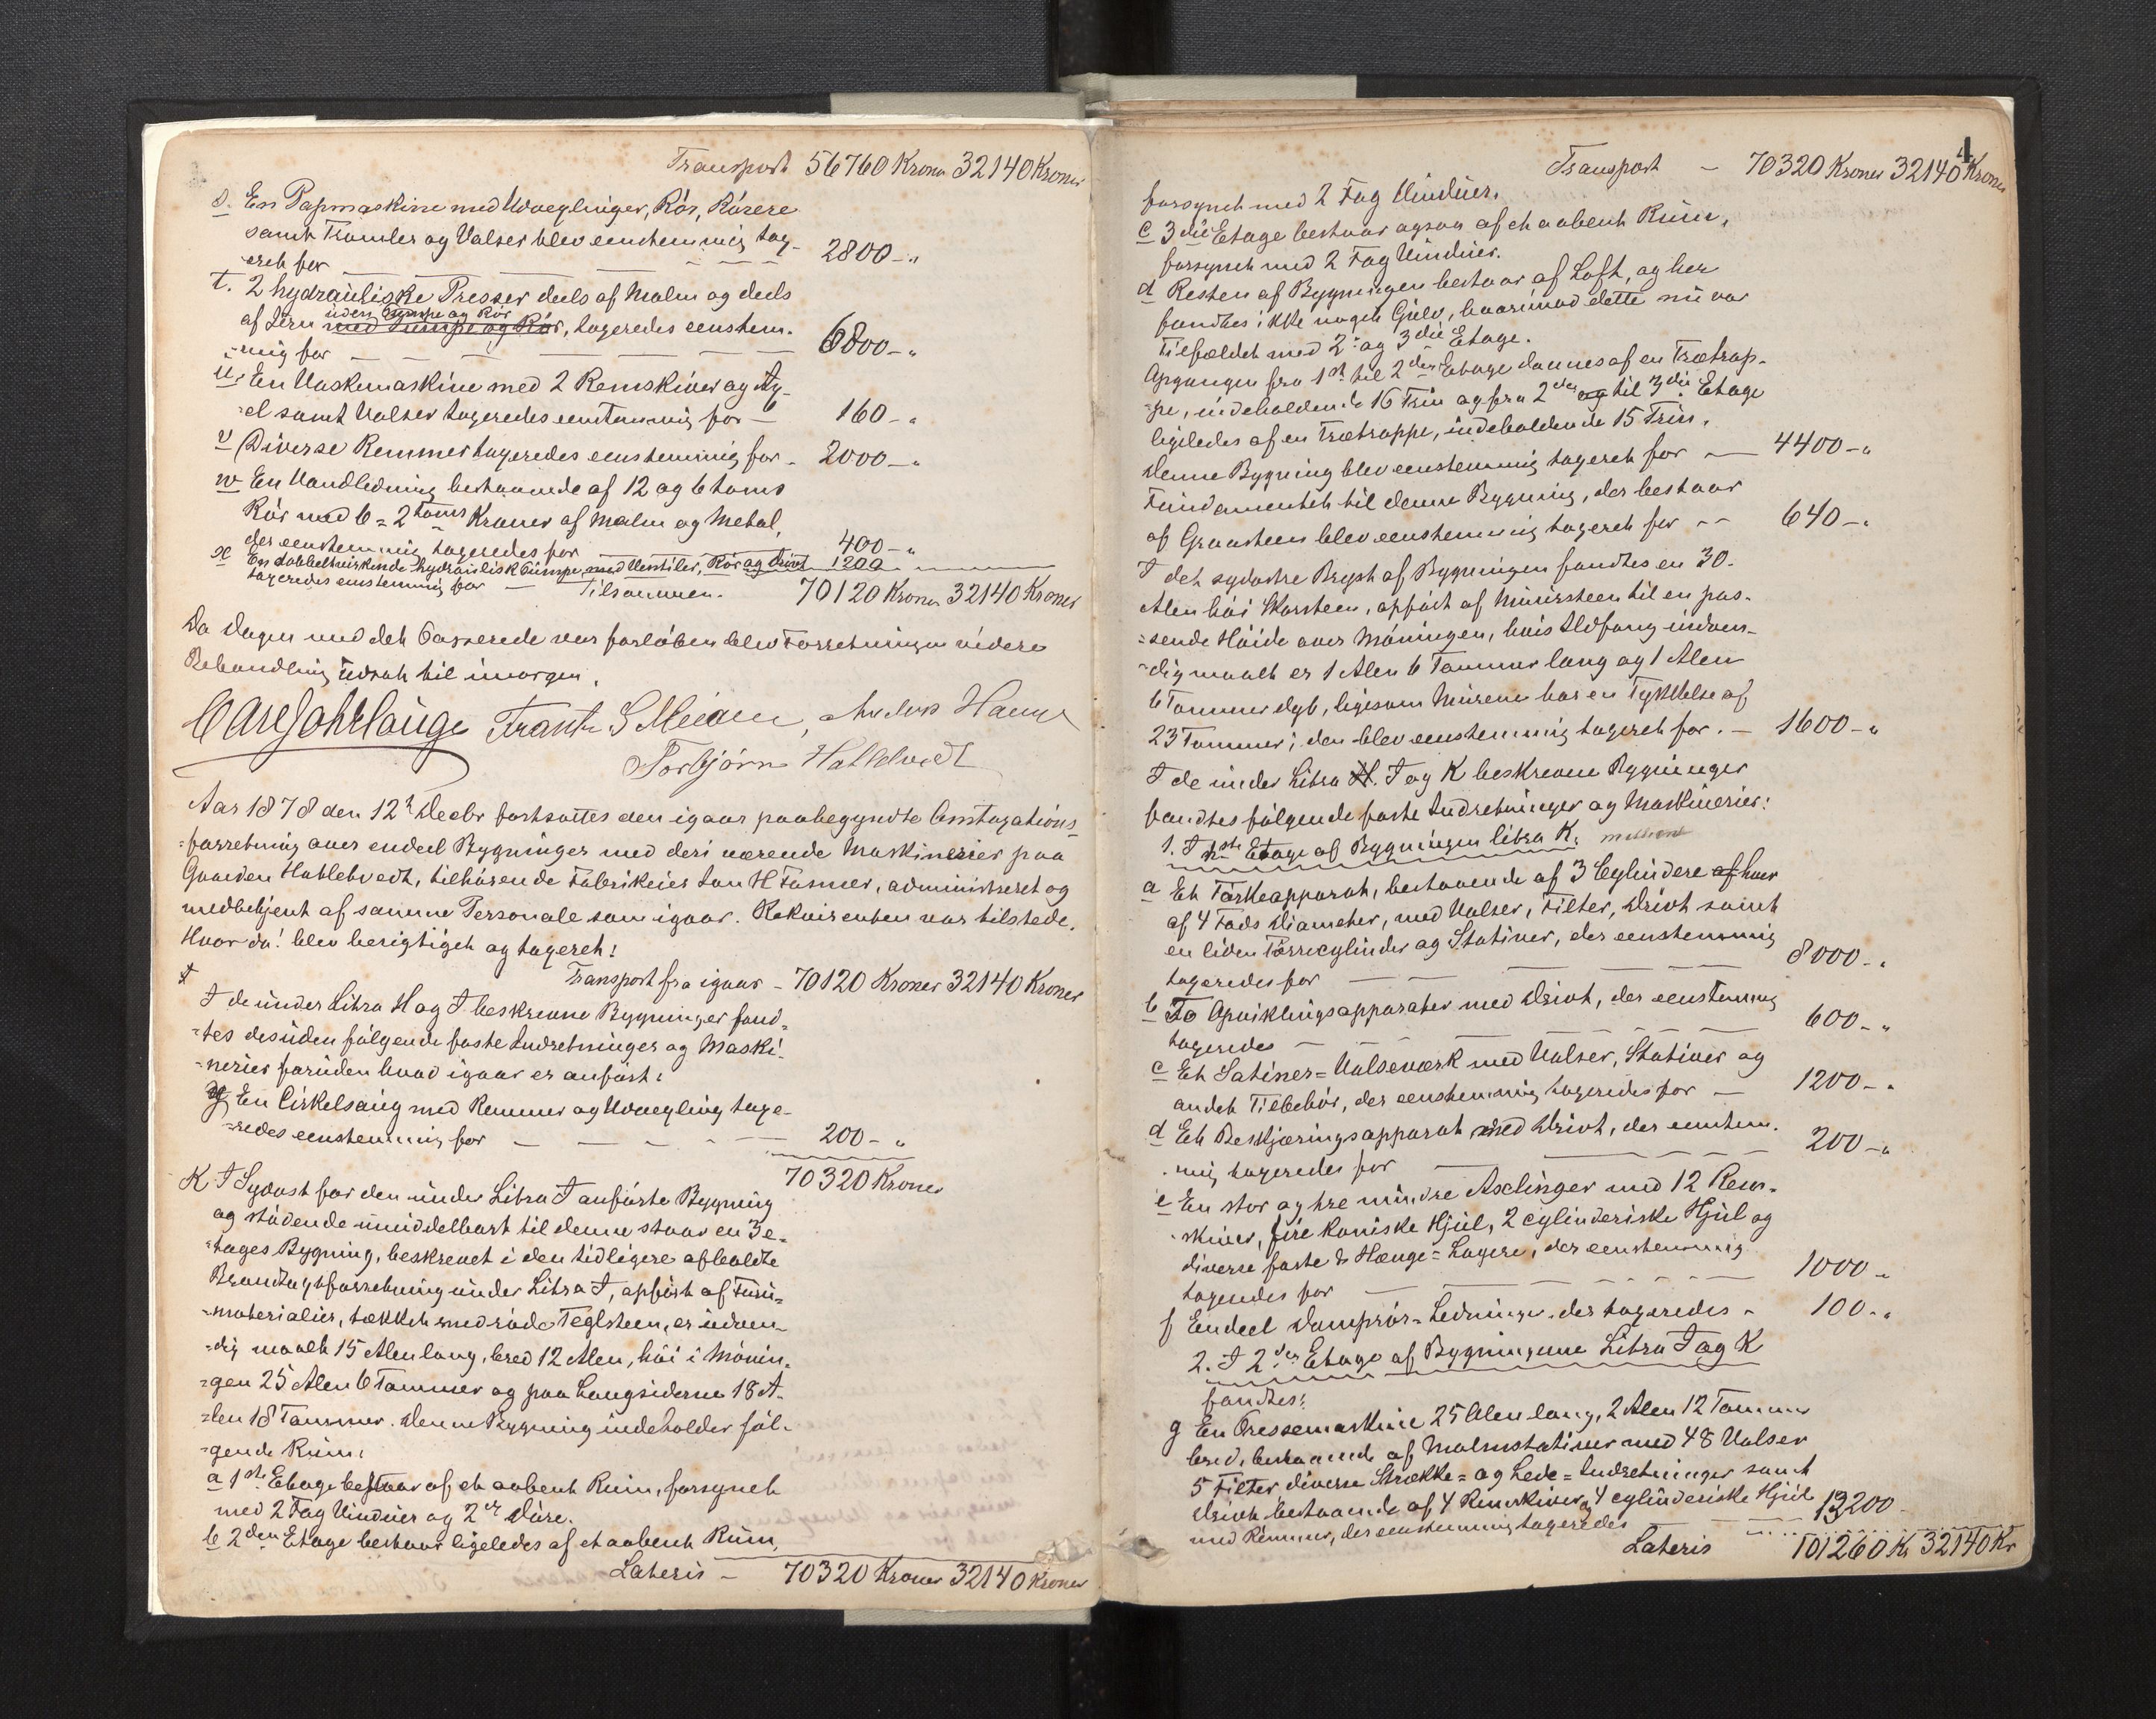 Transport 56760 Kroner 32140 Kroner
s. En Papmaskine med Udvexlinger, Rör, Rörere
samt Tromler og Valser blev eenstemmig tax-
eret for — — — — — 2800 - "
t. 2 hydrauliske Presser deels af Malm og deels
uden Pumpe og Rör
af Jern med Pumpe og Rör, taxeredes eenstem-
-mig for — — — — — 6800 - "
u. En Vaskemaskine med 2 Remskiver og Ax-
-el samt Valser taxeredes eenstemmig for — 160 - "
v Diverse Remmer taxeredes eenstemmig for - 2000 - "
w En Vandledning bestaaende af 12 og 6 toms
Rör med 6 = 2 toms Kraner af Malm og Metal,
der eenstemmig taxeredes for 400 - "
x En dobbeltvirkende hydraulisk Pumpe med Ventiler, Rör og Drivt 1200
taxeredes eenstemmig for — Tilsammen. 70120 Kroner 32140 Kroner
Da Dagen med det Passerede var forløben blev Forretningen videre
Behandling udsat til imorgen.
Carl Joh Lange Frantz S Meidell, Anders Hauge
Torbjørn Hatlebvedt
Aar 1878 den 12te Decbr fortsattes den igaar paabegyndte Omtaxations-
-forretning over endeel Bygninger med deri værende Maskinerier paa
Gaarden Hatlebvedt, tilhörende Fabrikeier Jan H Fasmer, administreret og
medbetjent af samme Personale som igaar. Rekvirenten var tilstede.
Hvor da! blev berigtiget og taxeret:
Transport fra igaar - 70120 Kroner 32140 Kroner
I de under Litra H og I beskrevne Bygninger fand-
-tes desuden fölgende faste Indretninger og Maski-
-nerier foruden hvad igaar er anfört:
y En Cirkelsaug med Remmer og Udvexling taxe-
-redes eenstemmig for — — — — 200 - "
70320 Kroner
K I Sydost for den under Litra I anförte Bygning
og stödende umiddelbart til denne staar en 3 e-
-tages Bygning, beskrevet i den tidligere afholdte
Brandtaxtforretning under Litra I, opfört af Furu-
-materialier, tækket med röde Teglsteen, er udven-
-dig maalt 15 Alen lang, bred 12 Alen, höi i Mönin-
-gen 25 Alen 6 Tommer og paa Langsiderne 18 A-
-len 18 Tommer. Denne Bygning indeholder föl-
-gende Rum:
a 1ste Etage bestaar af et aabent Rum, forsynet
med 2 Fag Vinduer og 2 Döre.
b 2den Etage bestaar ligeledes af et aabent Rum,
Lateris - 70320 Kroner 32140 Kroner
4
Transport - 70320 Kroner 32140 Kroner
forsynet med 2 Fag Vinduer.
c 3die Etage bestaar ogsaa af et aabent Rum,
forsynet med 2 Fag Vinduer.
d Resten af Bygningen bestaar af Loft, og her
fandtes ikke noget Gulv, hvorimod dette nu var
Tilfældet med 2: og 3die Etage.
Opgangen fra 1ste til 2den Etage dannes af en Trætrap-
-pe, indeholdende 16 Trin og fra 2den og til 3die Etage
ligeledes af en Trætrappe, indeholdende 15 Trin.
Denne Bygning blev eenstemmig taxeret for — 4400 - "
Fundamentet til denne Bygning, der bestaar
af Graasteen blev eenstemmig taxeret for - - 640 - "
I det sydostre Bryst af Bygningen fandtes en 30-
Alen höi Skorsteen, opfört af Muursteen til en pas-
-sende Höide over Möningen, hvis Ildfang indven-
-dig maalt er 1 Alen 6 Tommer lang og 1 Alen
6 Tommer dyb, ligesom Murene har en Tykkelse af
23 Tommer; den blev eenstemmig taxeret for. - 1600 - "
I de under Litra H. I og K beskrevne Bygninger
fandtes fölgende faste Indretninger og Maskinerier:
1. I 1ste Etage af Bygningen litra K.
a Et Törkeapparat, bestaaende af 3 Cylindere af hver
af 4 Fods Diameter, med Valser, Filter, Drivt samt
en liden Törrecylinder og Stativer, der eenstemmig
taxeredes for — — — — 8000 - "
b To Opviklingsapparater med Drivt, der eenstemmig
taxeredes — — — — 600 - "
c Et Satiner=Valseværk med Valser, Stativer og
andet Tilbehör, der eenstemmig taxeredes for — 1200 - "
d Et Beskjæringsapparat med Drivt, der eenstem-
-mig taxeredes for — — — 200 - "
e En stor og tre mindre Axelinger med 12 Rem-
-skiver, fire koniske Hjul, 2 cylinderiske Hjul og
diverse faste & Hænge=Lagere, der eenstemmig
taxeredes for — — — — 1000 - "
f Endeel Damprör=Ledninger der taxeredes - 100 - "
2. I 2den Etage af Bygningerne Litra I og K
fandtes:
g En Pressemaskine 25 Alen lang, 2 Alen 12 Tommer
bred, bestaaende af Malmstativer med 48 Valser
5 Filter diverse Strække= og Lede=Indretninger samt
Drivt bestaaende af 4 Remskiver og 4 cylinderiske Hjul
med Remmer, der eenstemmig taxeredes — 13200 -
Lateris 101260 Kr 32140 Kr